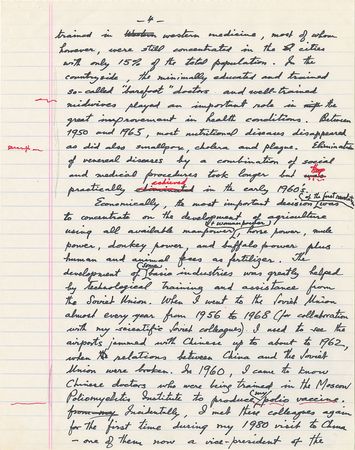 - 4 -
trained in western medicine, most of whom
however, were still concentrated in the cities
with only 15% of the total population. In the
countryside, the minimally educated and trained
so-called "barefoot" doctors and well-trained
midwives played an important role in the
great improvement in health conditions. Between
1950 and 1965, most nutritional diseases disappeared
as did also smallpox, cholera and plague. Elimination
of venereal diseases by a combination of social
and medical procedures took longer but was
practically achieved in the early 1960s.
of the first
Economically, the most important decision was
to concentrate on the development of agriculture
+ woman power
using all available manpower, horse power, mule
power, donkey power, and buffalo power plus
human and animal feces as fertilizer. The
development of some basic industries was greatly helped
by technological training and assistance from
the Soviet Union. When I went to the Soviet Union
almost every year from 1956 to 1968 (for collaboration
with my scientific Soviet colleagues) I used to see the
airports jammed with Chinese up to about 1962,
when the relations between China and the Soviet
Union were broken. In 1960, I came to know
Chinese doctors who were being trained in the Moscow
Poliomyelitis Institute to produce my polio vaccine.
Incidentally, I met these colleagues again
for the first time during my 1980 visit to China
- one of them now a vice-president of the